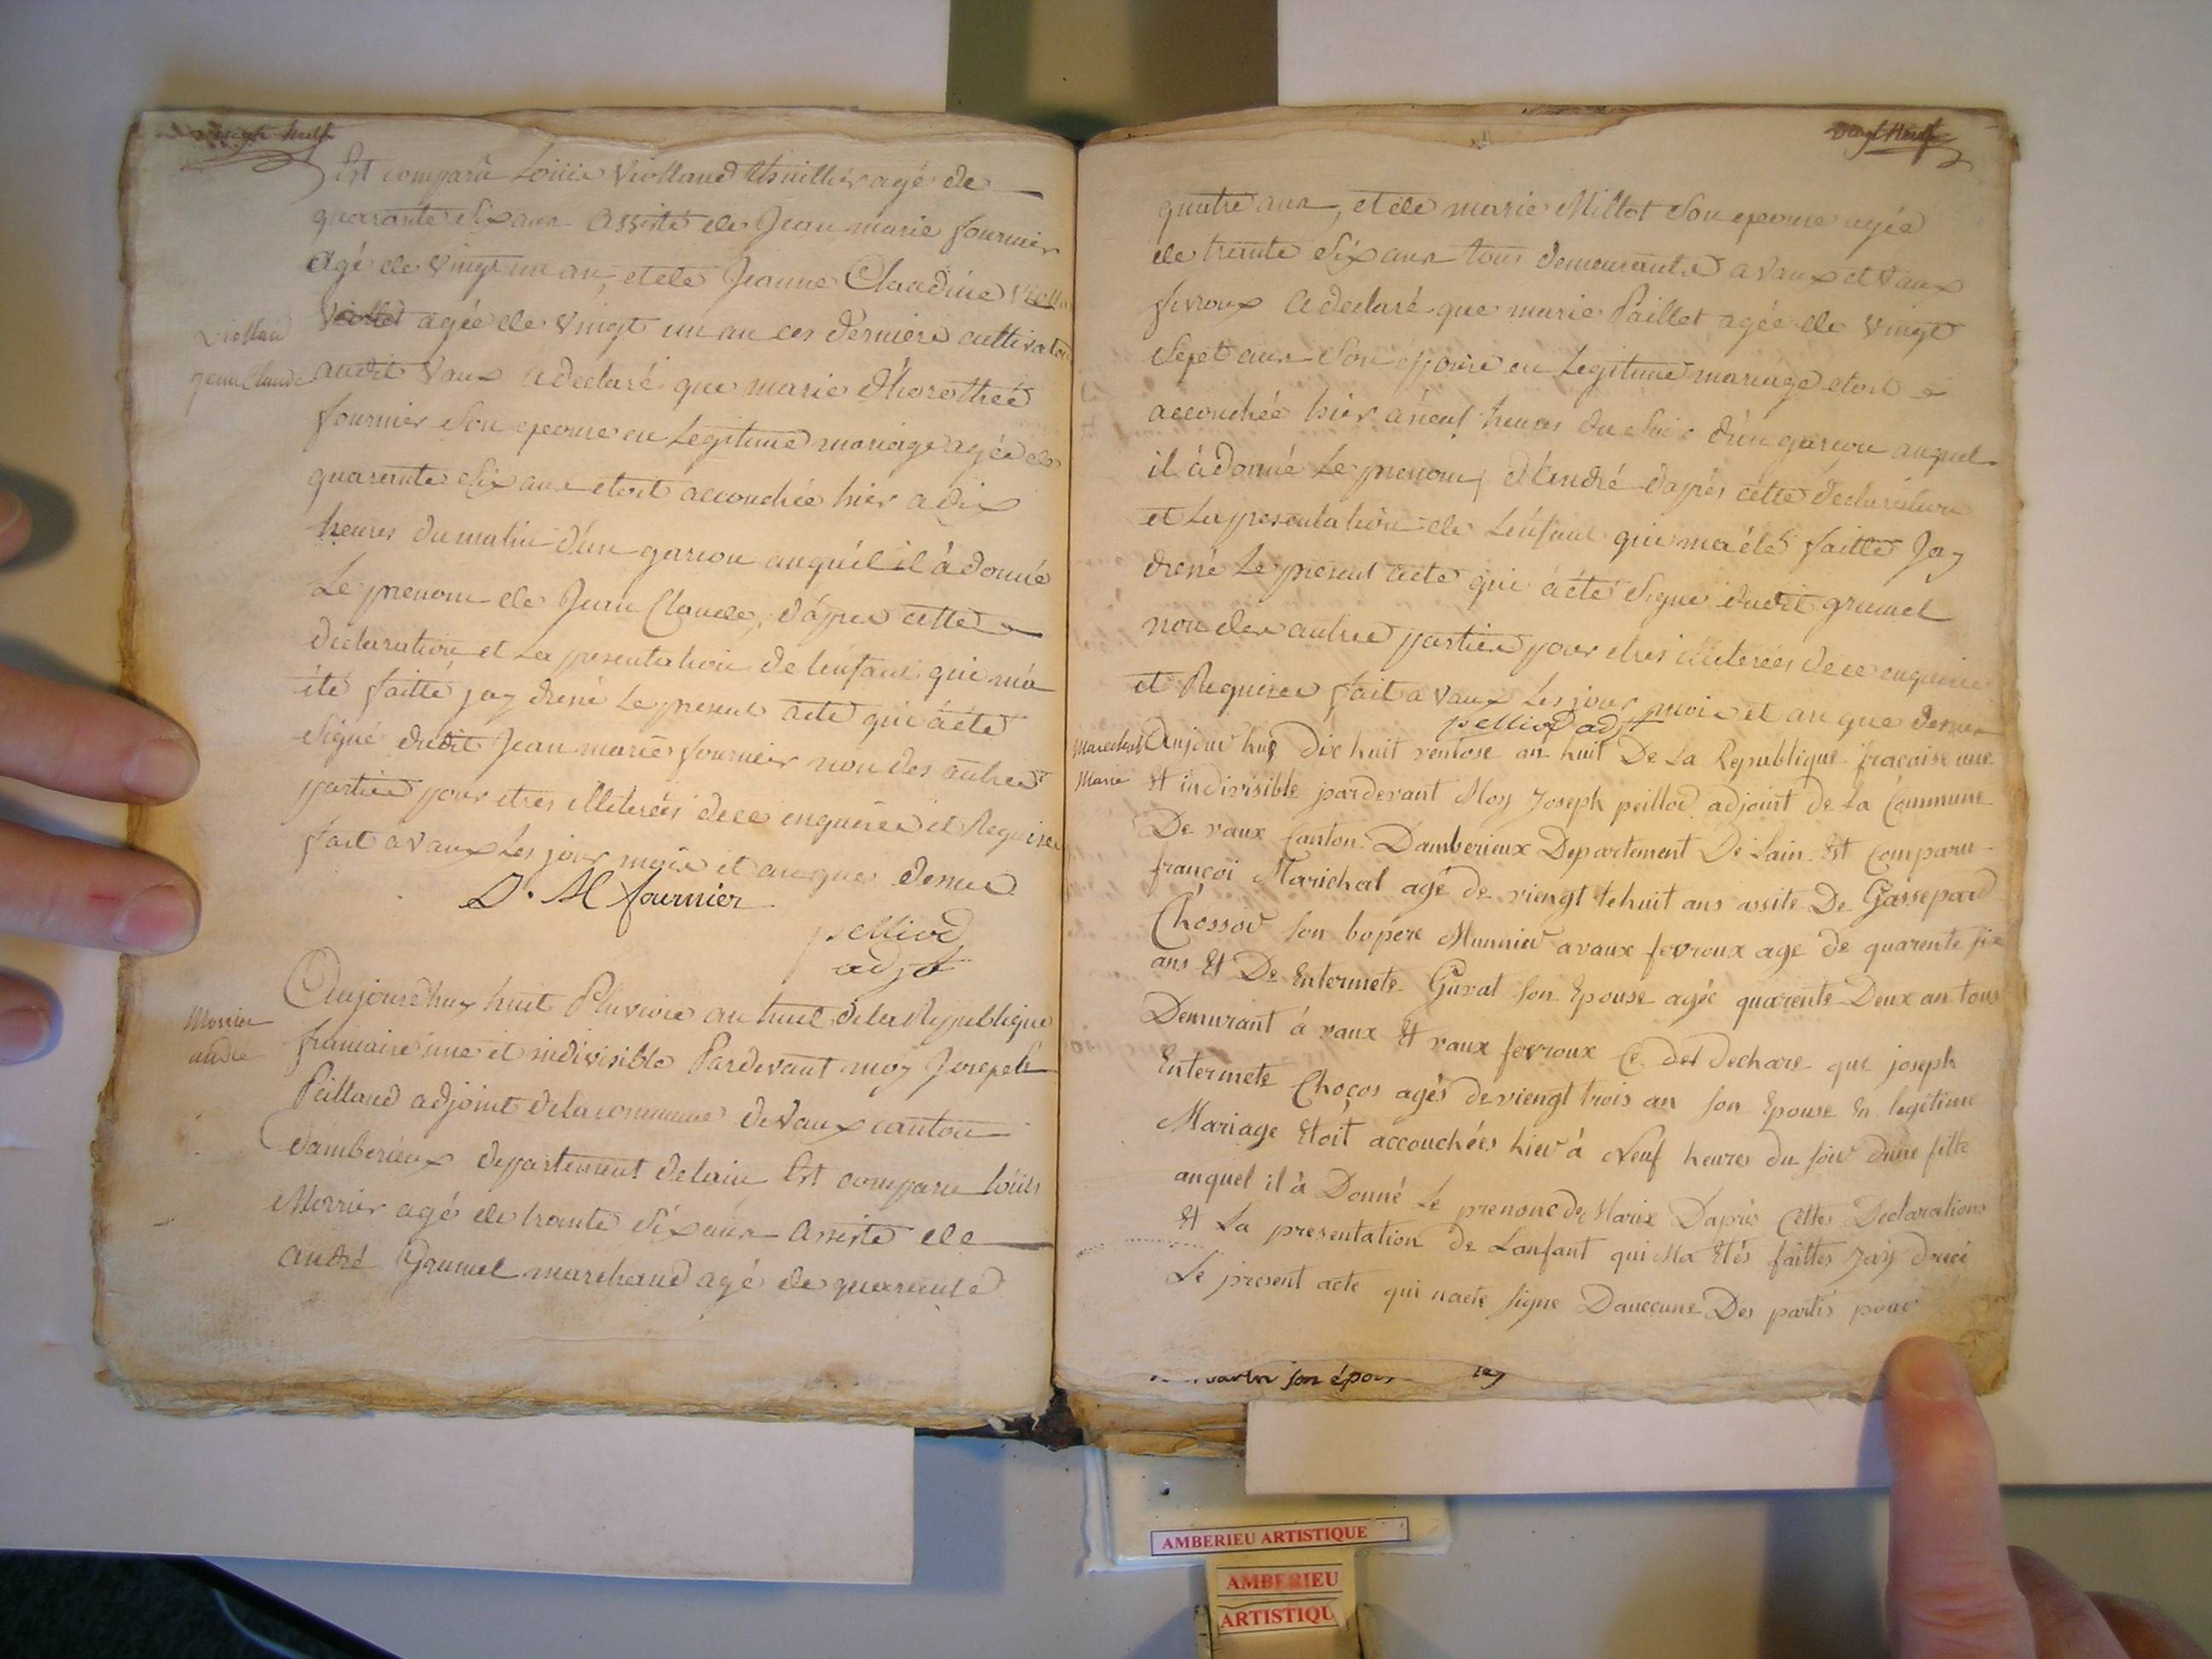 vingt huit
Est comparu Louis Viollaud thuillier agé de
quarante six ans assisté de Jean marie fournier
agé de vingt un an, et de Jeanne Claudine Viollet
agée de vingt un an ces derniers cultivateurs
Viollaud
Jean Claude
audit Vaux a declaré que marie Dhorothée
fournier son epouse en Legitime mariage agée de
quarante six ans etoit accouchée hier a dix
heures du matin d'un garcon auquél il à donné
Le prenom de Jean Claude, d'apres cette
declaration et La presentation de lenfant qui m'a
été faitte jay dressé Le present acte qui a été
signé dudit Jean marie fournier non des autres
parties pour etres illiterées de ce enquises et Requises
fait a vaux Les jour mois et an que dessus
D. M fournier
pelliod
adjt
Morrier
andré
Aujourdhuy huit Pluviose an huit de la Republique
francaise une et indivisible Pardevant moy Joseph
Peilland adjoint de la commune de Vaux canton
dambérieux departement de lain Est comparu Loüis
Morrier agé de trante six ans assisté de
andré Grumel marchand agé de quarante
vingt neuf
quatre ans, et de marie Millot son epouse agée
de trente six ans tous demeurants a Vaux et Vaux
fevroux a declaré que marie Paillet agée de vingt
sept ans son epouse en Legitime mariage etoit
accouchée hier a neuf heures du soir d'un garcon auquel
il à donné Le prenom d'André d'aprés cette declaration
et La presentation de Lenfant qui ma été faitte Jay
dressé Le present acte qui a été signé dudit grumel
non des autres parties pour etres illiterées de ce enquises
et Requises fait a Vaux Les jour mois et an que dessus
pelliod adjt
Marechal
Marie
Aujourhuy Dix huit ventose an huit De La Republique fracaise une
Et indivisible pardevant Moy Joseph peillod adjoint de La Commune
De vaux Canton Damberieux Departement De Lain Est Comparu
françoi Marichal agé de viengt tehuit ans assite De Gassepard
Chossod son bopére Munnier a vaux fevroux age de quarente six
ans Et De Entermete Guvat son Epouse agée quarente Deux an tous
Demurant á vaux Et vaux fevroux Ce det dechare que joseph
Entermete Choços agés de viengt trois an son Epouse En legitime
Mariage Etoit accouchées hier á Neuf heures du soir dune fille
auquel il à Donné Le prenome de Marie Daprés Cettes Declarations
Et La presentation de Lanfant qui Ma Etés faittes Jay drecé
Le present acte qui nacte signe Dauccune Des partis pour
son épous
AMBERIEU ARTISTIQUE
AMBERIEU
ARTISTIQU